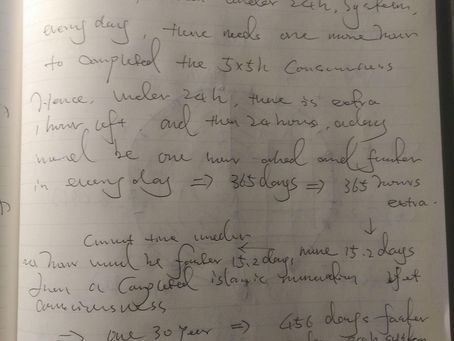 under 24h, System,
every day, there needs one more hour
to completed the 5x5h Consciousness
Hence, Under 24h, there is extra
1 hour left and then 24 hours, a day
would be one hour ahead and faster
in every day ⇒ 365 days ⇒ 365 hours
extra.
↓
Current time under
hour would be faster 15.2 days ← more 15.2 days
then a completed islamic
Consciousness
→ one 30 year ⇒ 456 days faster